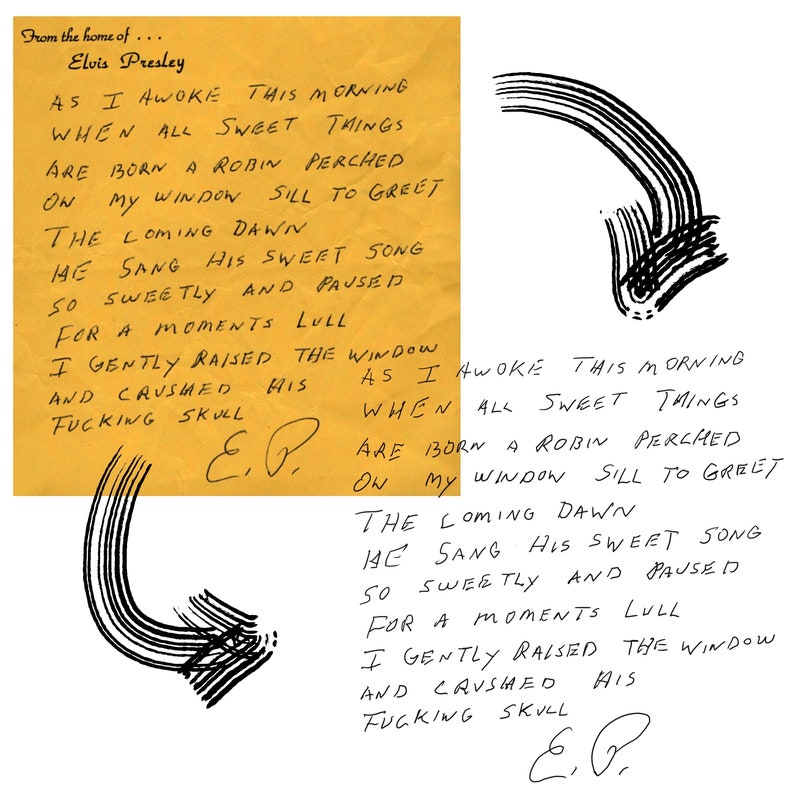 From the home of . . .
Elvis Presley
AS I AWOKE THIS MORNING
WHEN ALL SWEET THINGS
ARE BORN A ROBIN PERCHED
ON MY WINDOW SILL TO GREET
THE COMING DAWN
HE SANG HIS SWEET SONG
SO SWEETLY AND PAUSED
FOR A MOMENTS LULL
I GENTLY RAISED THE WINDOW
AND CRUSHED HIS
FUCKING SKULL
E.P.
AS I AWOKE THIS MORNING
WHEN ALL SWEET THINGS
ARE BORN A ROBIN PERCHED
ON MY WINDOW SILL TO GREET
THE COMING DAWN
HE SANG HIS SWEET SONG
SO SWEETLY AND PAUSED
FOR A MOMENTS LULL
I GENTLY RAISED THE WINDOW
AND CRUSHED HIS
FUCKING SKULL
E.P.